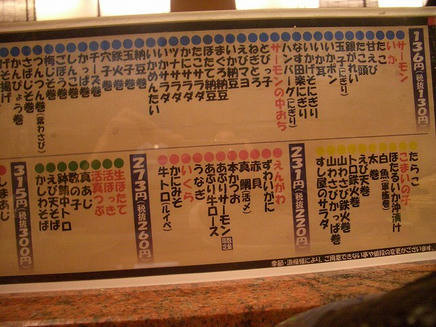 136円(税抜130円)
サーモン
いか
甘えび
たこ頭
鎌がれい
玉子(にぎり)
いかポン
いか耳
いかげそにぎり
なす田楽にぎり
ハンバーグ(にぎり)
サーモンの中おち
とびっ子
ねぎとろ
えびマヨ
いか納豆
まぐろ納豆
ほたて納豆
たこサラダ
かにサラダ
ツナサラダ
いかサラダ
いかめんたい
納豆巻
玉子巻
チーズ巻
鉄火巻
穴子巻
かんこ巻
ごぼう巻
梅しそ巻
つんつん巻(葉わさび)
さば巻
かんぴょう巻
げそ揚げ
231円(税抜220円)
たらこ
こまいの子
ほたるいか沖漬け
白魚(軍艦)
太巻
えび天巻
トロ鉄火巻
山わさび鉄火巻
山わさびかっぱ巻
すし屋のサラダ
273円(税抜260円)
えんがわ
ずわいがに
赤貝
真鯛(活〆)
本かつお
あぶりサーモン
あぶり牛ロース
うなぎ
いくら
かにみそ
牛トロ(ルイベ)
315円(税抜300円)
生ほたて
活ほっき
活真つぶ
真あじ
数の子
鉢鮪中トロ
えび天そば
かしわそば
しまあじ
季節・漁模様により、ご用意できない事や値段の変更がございます。